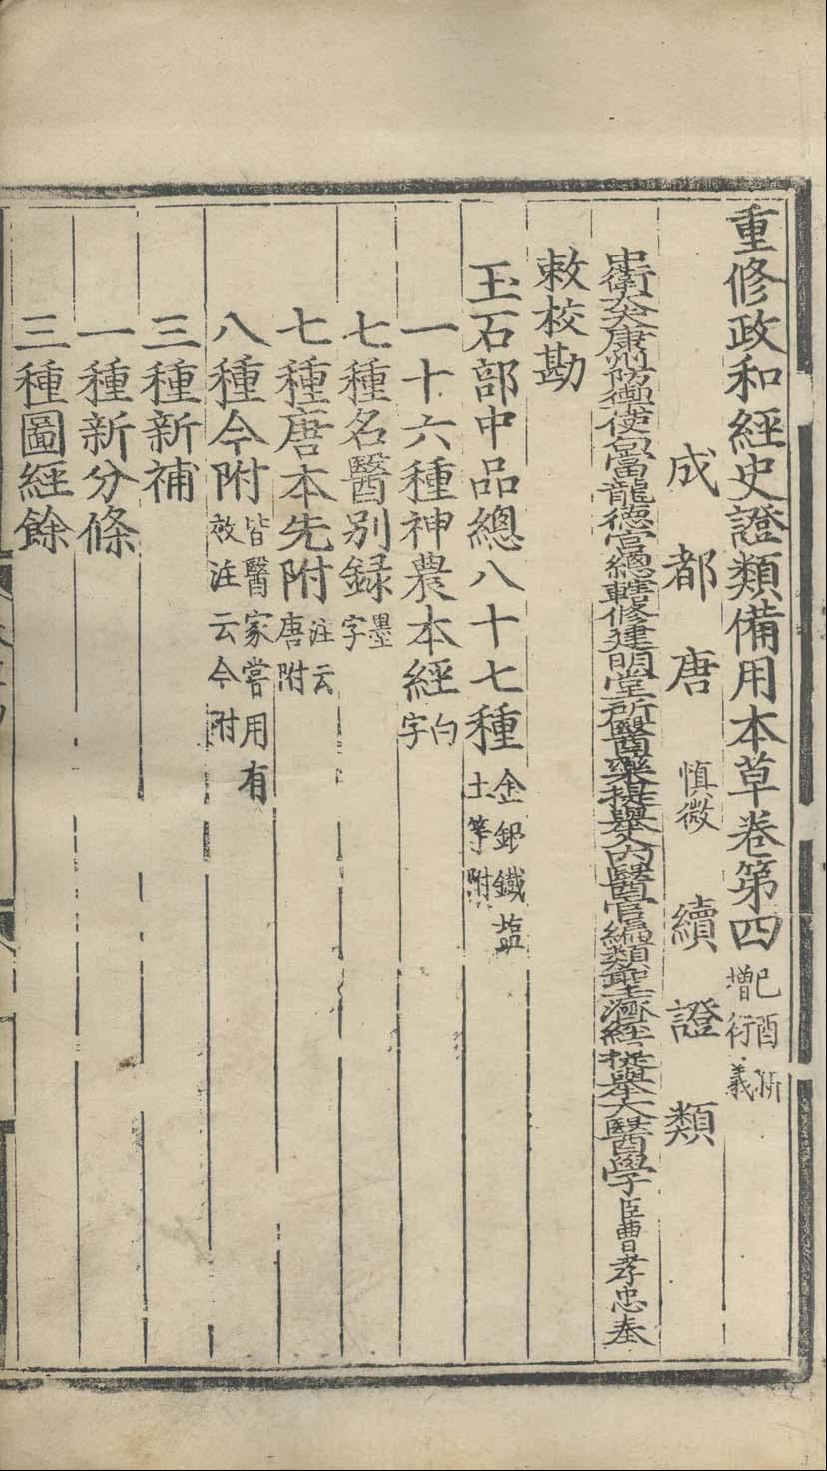 重修政和經史證類備用本草卷第四 己酉新增衍義
成都唐 慎微 續證類
中衛大夫康州防禦使句當龍德宮總轄修建明堂所醫藥提舉入內醫官編類聖濟經提舉太醫學臣曹孝忠奉
敕校勘
玉石部中品總八十七種 金銀鐵鹽土等附
一十六種神農本經 白字
七種名醫别録 墨字
七種唐本先附 注云唐附
八種今附 皆醫家嘗用有效注云今附
三種新補
一種新分條
三種圖經餘